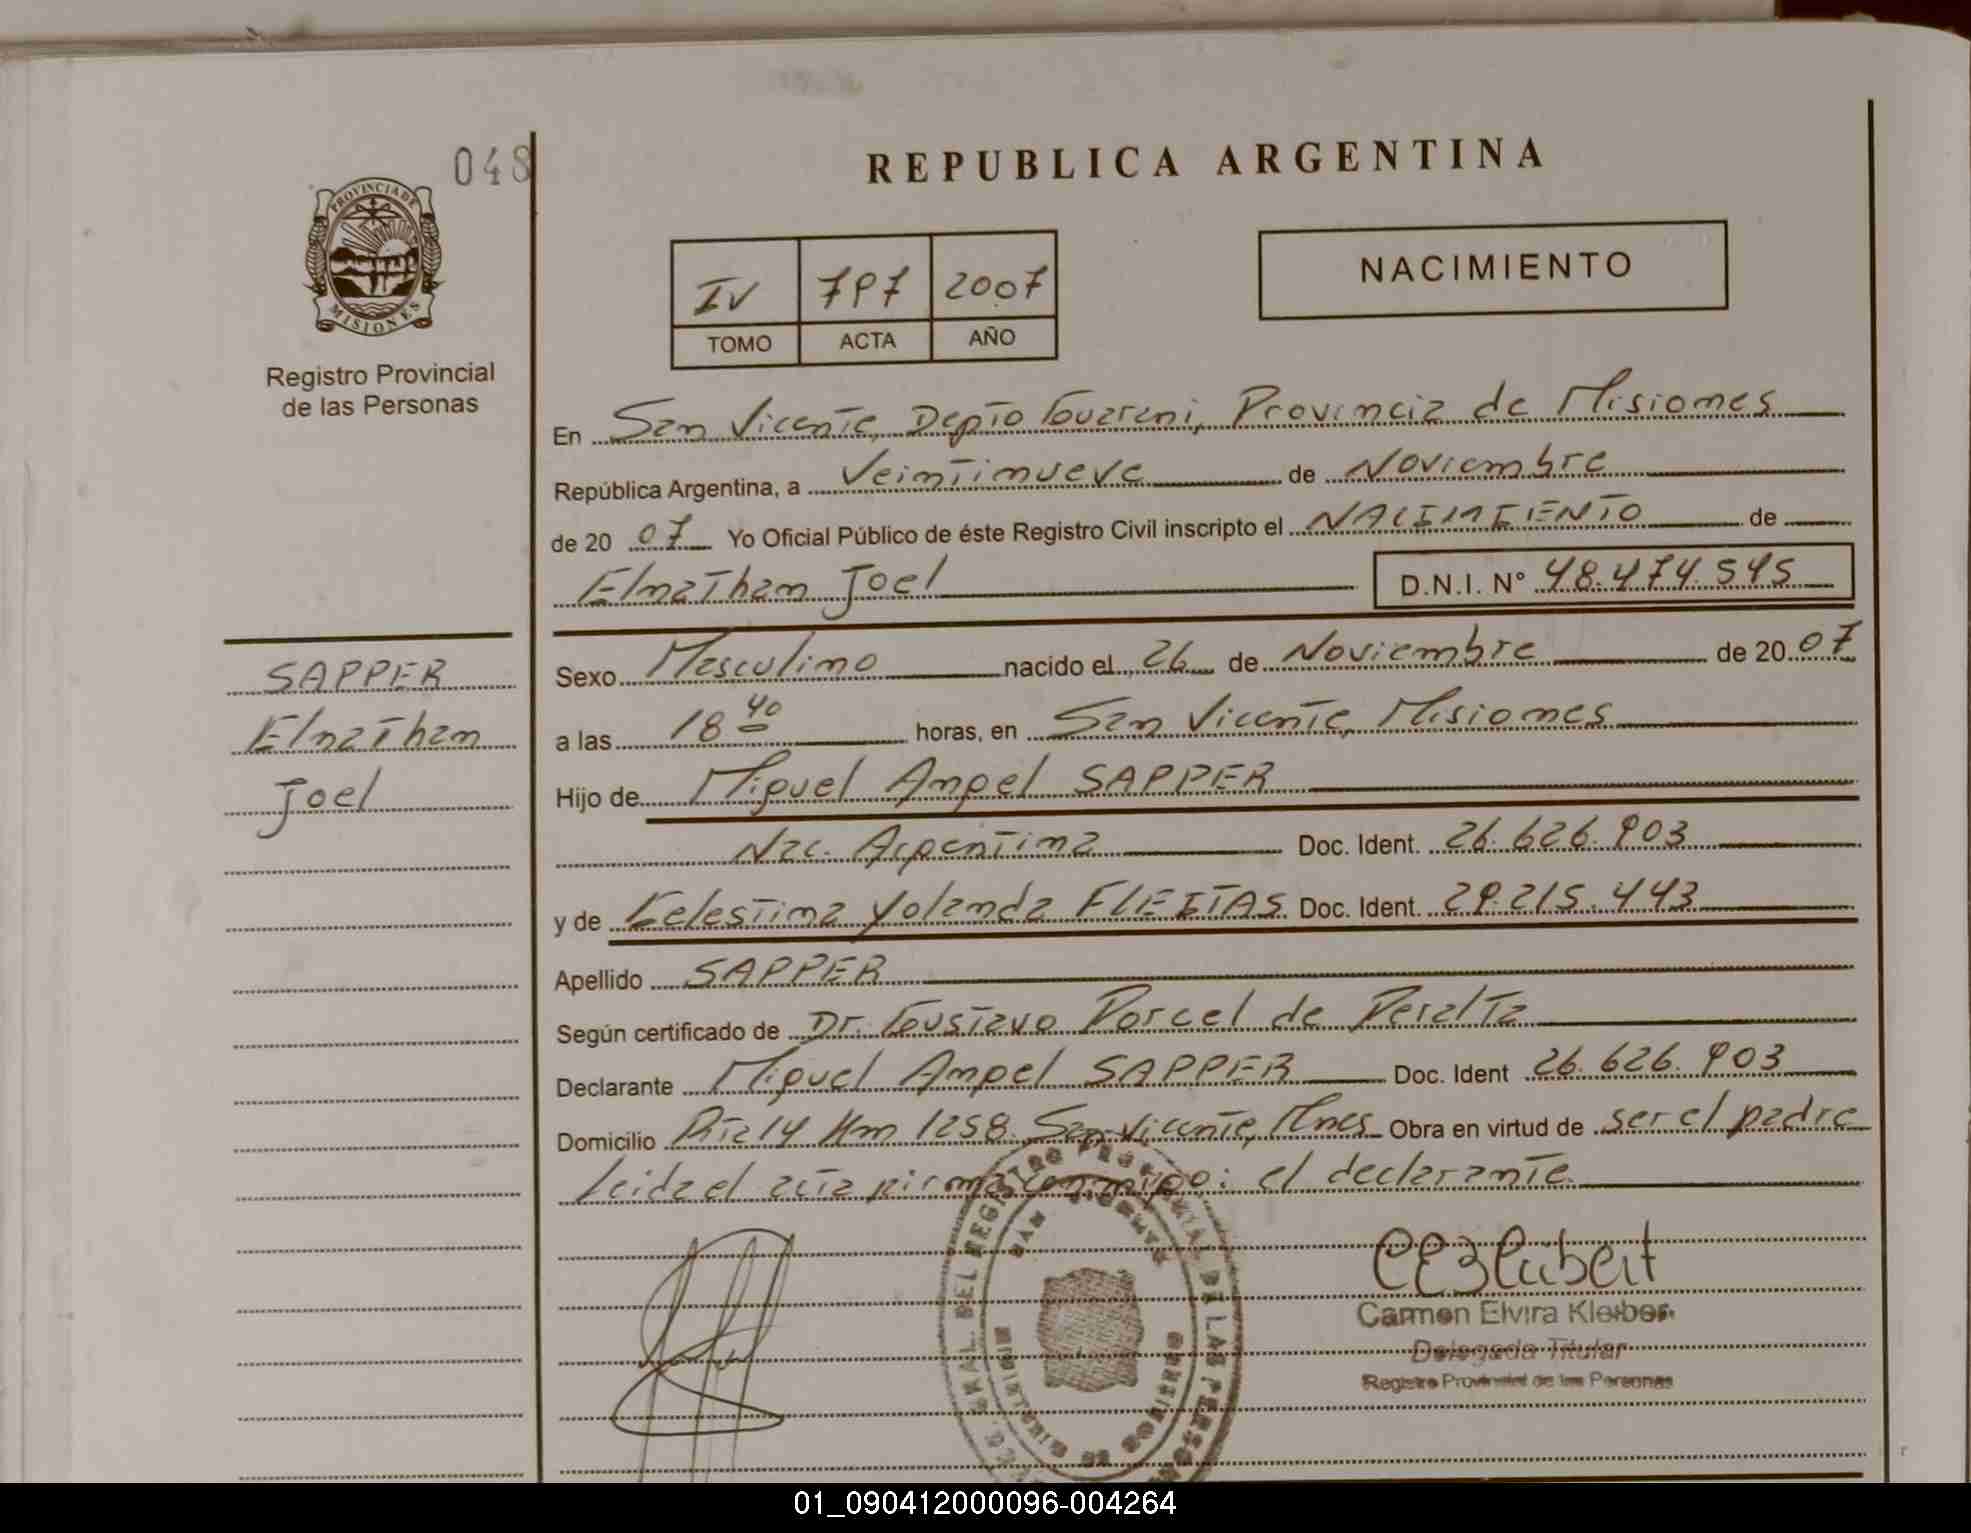 048
REPUBLICA ARGENTINA
PROVINCIA DE
MISIONES
Registro Provincial
de las Personas
IV 797 2007
TOMO ACTA AÑO
NACIMIENTO
En San Vicente, Depto Guarani, Provincia de Misiones
República Argentina, a Veintinueve de Noviembre
de 2007 Yo Oficial Público de éste Registro Civil inscripto el NACIMIENTO de
Elnathan Joel D.N.I. N° 48.474.595
SAPPER
Elnathan
Joel
Sexo Masculino nacido el 26 de Noviembre de 2007
a las 18 40 horas, en San Vicente, Misiones
Hijo de Miguel Angel SAPPER
Nac. Argentina Doc. Ident. 26.626.903
y de Celestina Yolanda FLEITAS Doc. Ident. 29.215.443
Apellido SAPPER
Según certificado de Dr. Gustavo Porcel de Peralta
Declarante Miguel Angel SAPPER Doc. Ident 26.626.903
Domicilio Rta 14 Km 1258 San Vicente, Mnes Obra en virtud de ser el padre
Leida el acta firma conmigo: el declarante
Carmen Elvira Kleiber
Delegada Titular
Registro Provincial de las Personas
01_090412000096-004264